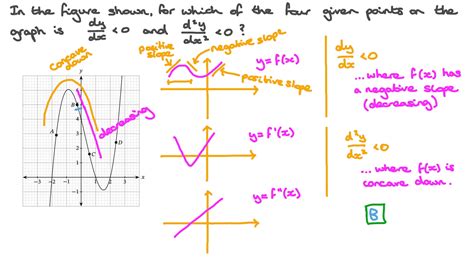 In the figure shown, for which of the four given points on the
graph is dy/dx < 0 and d²y/dx² < 0 ?
concave
down
decreasing
y
6
5
4
3
2
1
−1
−3 −2 −1 1 2 3 x
A
B
C
D
positive
slope
negative slope
y = f(x)
positive slope
y = f'(x)
y = f"(x)
dy/dx < 0
... where f(x) has
a negative slope
(decreasing)
d²y/dx² < 0
... where f(x) is
concave down.
B